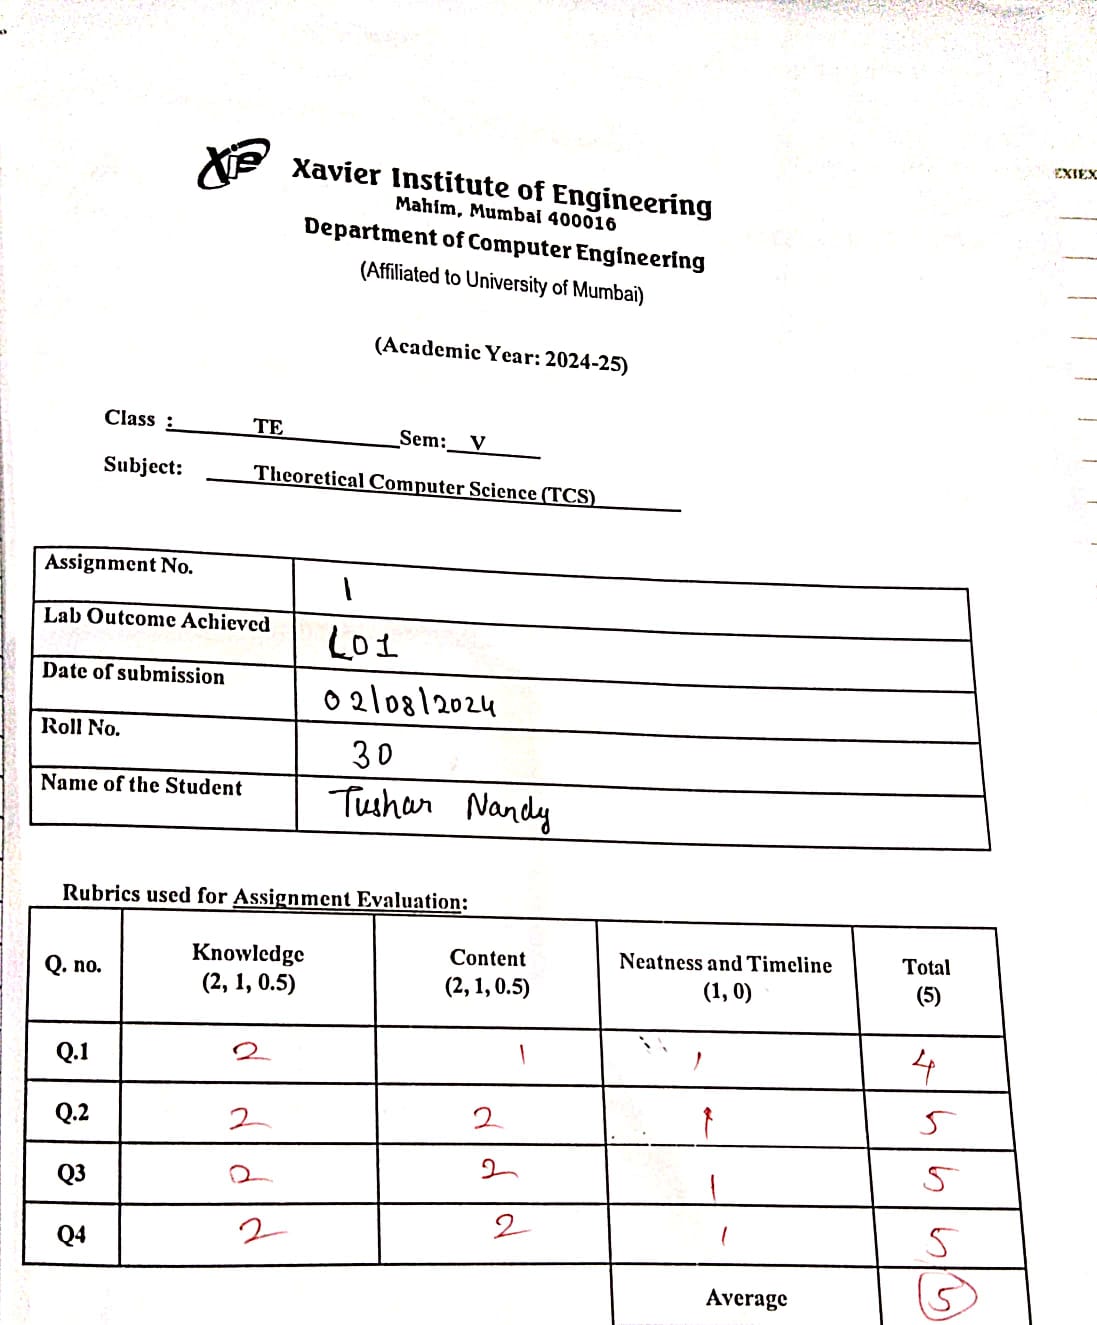 XIE
Xavier Institute of Engineering
Mahim, Mumbai 400016
Department of Computer Engineering
(Affiliated to University of Mumbai)
(Academic Year: 2024-25)
Class : TE Sem: V
Subject: Theoretical Computer Science (TCS)
Assignment No. 1
Lab Outcome Achieved LO1
Date of submission 02/08/2024
Roll No. 30
Name of the Student Tushar Nandy
Rubrics used for Assignment Evaluation:
Q. no. Knowledge (2, 1, 0.5) Content (2, 1, 0.5) Neatness and Timeline (1, 0) Total (5)
Q.1 2 1 1 4
Q.2 2 2 1 5
Q3 2 2 1 5
Q4 2 2 1 5
Average 5
EXIEX